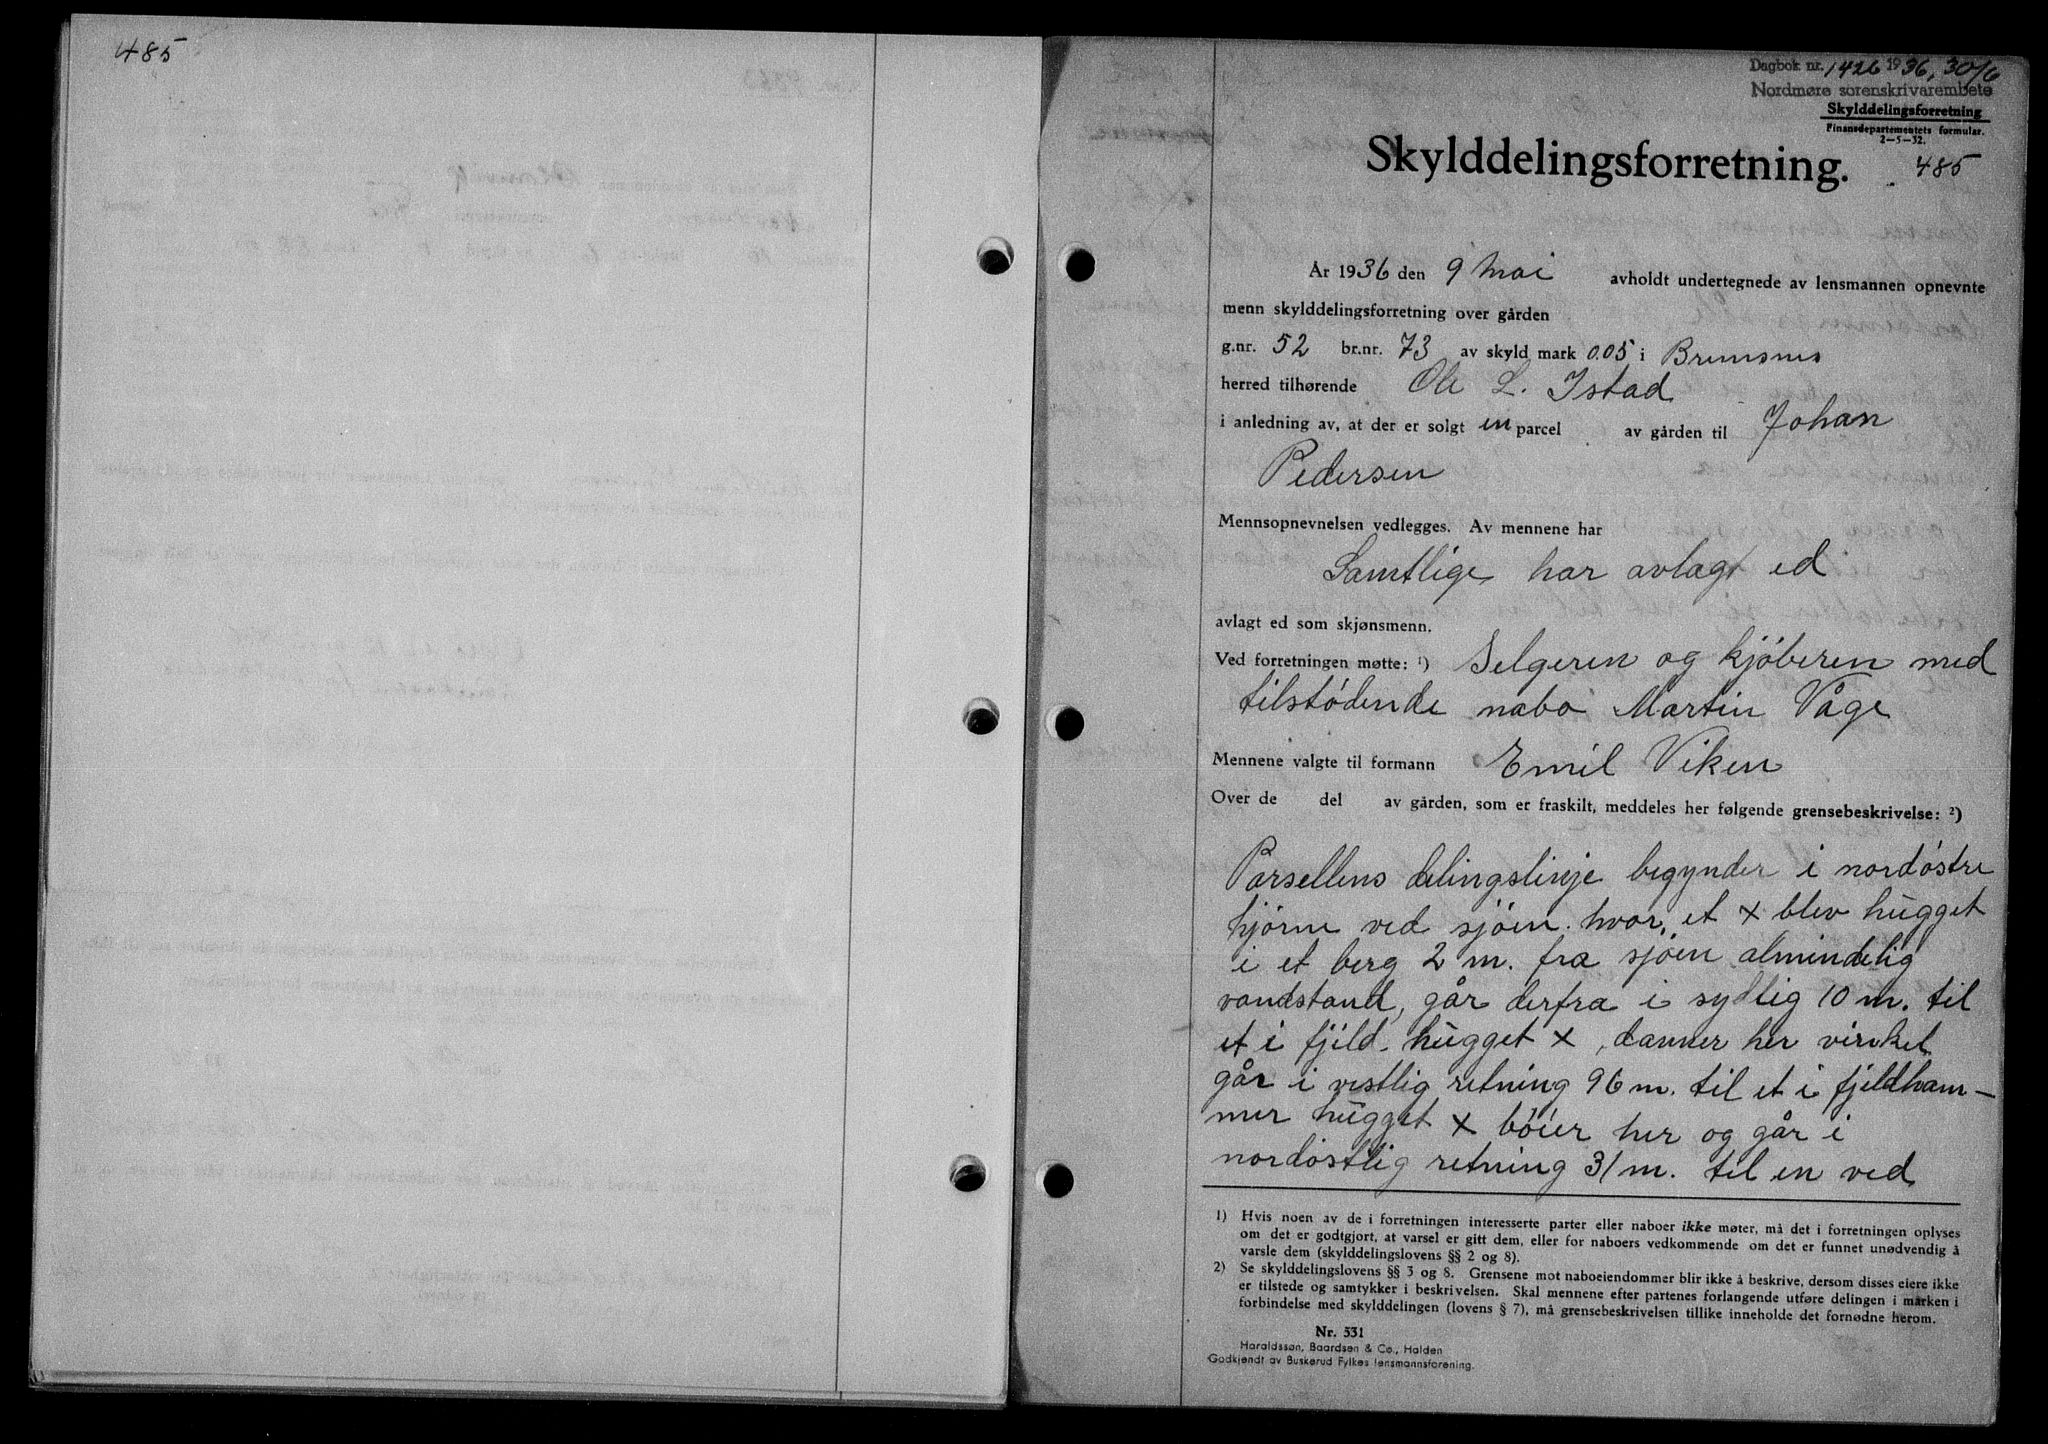 485
Dagbok nr. 1426 1936, 30/6
Nordmøre sorenskrivarembete
Skylddelingsforretning
Finansdepartementets formular.
2—5—32.
Skylddelingsforretning.
485
År 1936 den 9 mai avholdt undertegnede av lensmannen opnevnte
menn skylddelingsforretning over gården
g.nr. 52 br.nr. 73 av skyld mark 0.05 i Bremsnes
herred tilhørende Ole L. Istad
i anledning av, at der er solgt en parcel av gården til Johan
Pedersen
Mennsopnevnelsen vedlegges. Av mennene har
Samtlige har avlagt ed
avlagt ed som skjønsmenn.
Ved forretningen møtte: 1) Selgeren og kjöberen med
tilstødende nabo Martin Våge
Mennene valgte til formann Emil Viken
Over de del av gården, som er fraskilt, meddeles her følgende grensebeskrivelse: 2)
Parsellens delingslinje begynder i nordøstre
hjörne ved sjöen. hvor, et x blev hugget
i et berg 2 m. fra sjöen almindelig
vandstand, går derfra i sydlig 10 m. til
et i fjeld. hugget x, danner her vinkel
går i vestlig retning 96 m. til et i fjeldham-
mer hugget x böier her og går i
nordöstlig retning 31 m. til en ved
1) Hvis noen av de i forretningen interesserte parter eller naboer ikke møter, må det i forretningen oplyses
om det er godtgjort, at varsel er gitt dem, eller for naboers vedkommende om det er funnet unødvendig å
varsle dem (skylddelingslovens §§ 2 og 8).
2) Se skylddelingslovens §§ 3 og 8. Grensene mot naboeiendommer blir ikke å beskrive, dersom disses eiere ikke
er tilstede og samtykker i beskrivelsen. Skal mennene efter partenes forlangende utføre delingen i marken i
forbindelse med skylddelingen (lovens § 7), må grensebeskrivelsen tillike inneholde det fornødne herom.
Nr. 531
Haraldssøn, Baardsen & Co., Halden
Godkjendt av Buskerud Fylkes lensmannsforening.